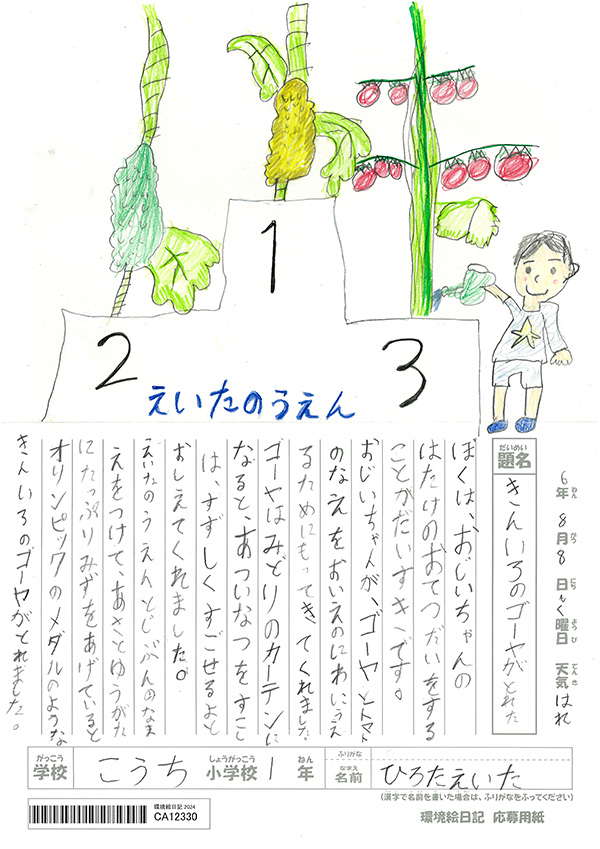 1
2
3
えいたのうえん
6年 8月8日もく曜日 天気はれ
題名 きんいろのゴーヤがとれた
ぼくは、おじいちゃんの
はたけのおてつだいをする
ことがだいすきです。
おじいちゃんが、ゴーヤとトマト
のなえをおいえのにわにうえ
るためにもってきてくれました
ゴーヤはみどりのカーテンに
なると、あついなつをすこし
は、すずしくすごせるよと
おしえてくれました。
えいたのうえんとじぶんのなま
えをつけて、あさとゆうがた
にたっぷりみずをあげていると
オリンピックのメダルのような
きんいろのゴーヤがとれました。
学校 こうち 小学校 1年 名前 ひろたえいた
(漢字で名前を書いた場合は、ふりがなをふってください)
環境絵日記 2024
CA12330
環境絵日記 応募用紙